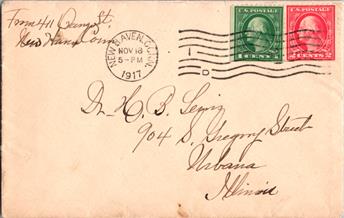 From 411 Orange St.
New Haven Conn
NEW HAVEN, CONN.
NOV 18
5-PM
1917
U.S. POSTAGE
U.S. POSTAGE
1 CENT 1
2 CENTS 2
Dr. H. B. Lewis
904 S. Gregory Street
Urbana
Illinois